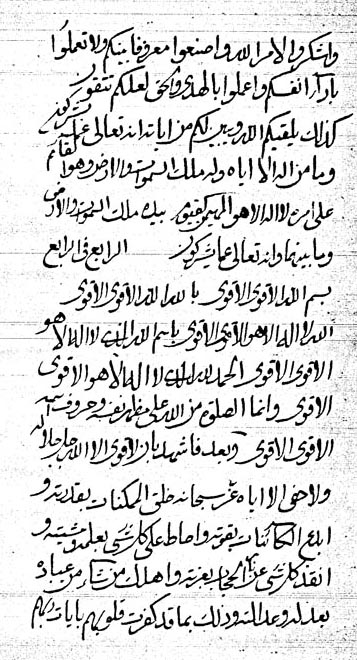 واشكروا لامر الله واصنعوا معروفا بينكم ولا تعملوا
بادآر انفسكم واعملوا بالهدى والحق لعلكم تتقون
كذلك يلقيكم الله ويبين لكم من اياته انه تعالى عما يشركون
وما من اله الا اياه وله ملك السموات والارض وهو القائم
على امره لا اله الا هو المهيمن القيوم بيده ملك السموات والارض
وما بينهما وانه تعالى عما يشركون الرابع فى الرابع
بسم الله الاقوى الاقوى بالله الله الاقوى الاقوى
الله لا اله الا هو الاقوى الاقوى باسم الله الذى لا اله الا هو
الاقوى الاقوى الحمد لله الذى لا اله الا هو الاقوى
الاقوى وانما الصلوة من الله على مظهر نفسه وحروف اسمه
الاقوى الاقوى وبعد فاشهد بان لا اقوى الا الله جل جلاله
ولا حق الا اياه عز سبحانه خلق الممكنات بقدرته و
ابدع الكائنات بقوته واحاط على كل شى بعلمه ومشيته و
انقذ كل شى عن بعزته واهلك من يشاء من عباده
بعد له وعد الته وذلك بما قد كفرت قلوبهم بايات ربهم